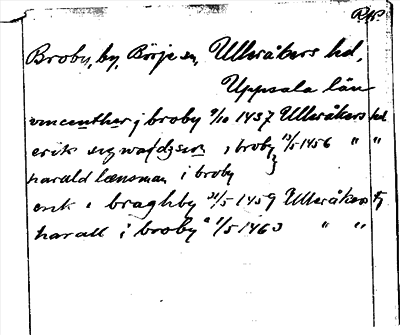 RAP
Broby, by, Börje sn, Ulleråkers hd,
Uppsala län
vincenther j broby 9/10 1437 Ulleråkers hd
erik sigwa(d)sson i broby 13/5 1456 " "
harald lænsman i broby }
erik i braghby 31/5 1459 Ulleråkers
harall i broby 1/5 1460 " "